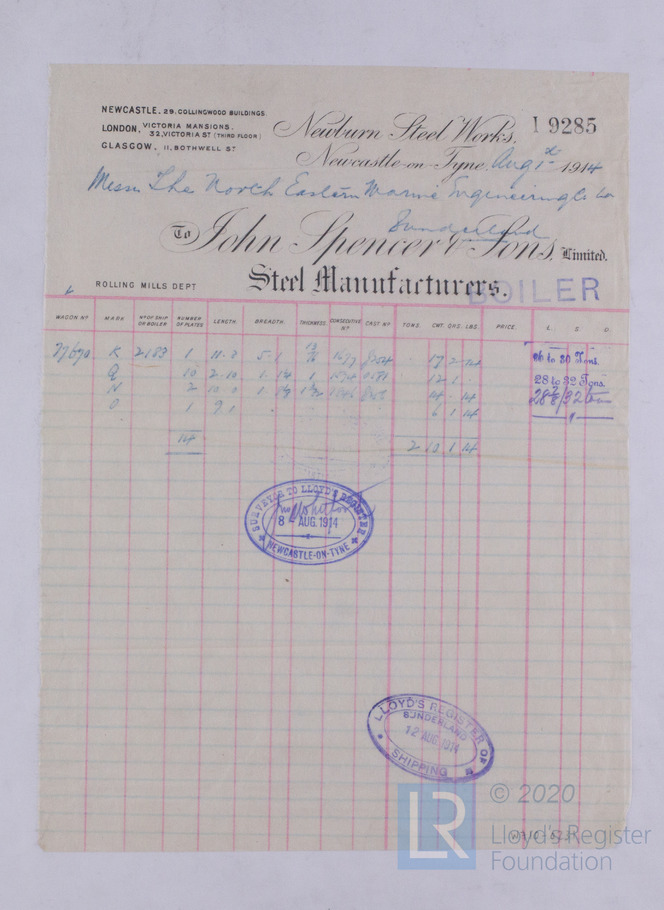 NEWCASTLE. 29. COLLINGWOOD BUILDINGS.
LONDON, VICTORIA MANSIONS.
32, VICTORIA ST (THIRD FLOOR)
GLASGOW, 11, BOTHWELL ST
Newburn Steel Works,
19285
Newcastle-on-Tyne, Aug 1st 1914
Messrs The North Eastern Marine Engineering Co Ld
Sunderland
To John Spencer & Sons, Limited.
Steel Manufacturers.
ROLLING MILLS DEPT
BOILER
WAGON NO MARK NO OF SHIP OR BOILER NUMBER OF PLATES LENGTH. BREADTH. THICKNESS. CONSECUTIVE NO CAST NO TONS. CWT. QRS. LBS. PRICE. £. S. D.
K 2183 1 11. 8 5. 1 17 2 14 26 to 30 Tons.
Q 10 2. 10 1. 1 12 1 28 to 32 Tons.
N 2 10. 0 1. 14 14
O 1 9. 1 6 1 14
14 2 10 1 14
SURVEYOR TO LLOYD'S REGISTER
8 AUG. 1914
NEWCASTLE-ON-TYNE
LLOYD'S REGISTER OF
SUNDERLAND
12 AUG. 1914
SHIPPING
LR
© 2020
Lloyd's Register
Foundation